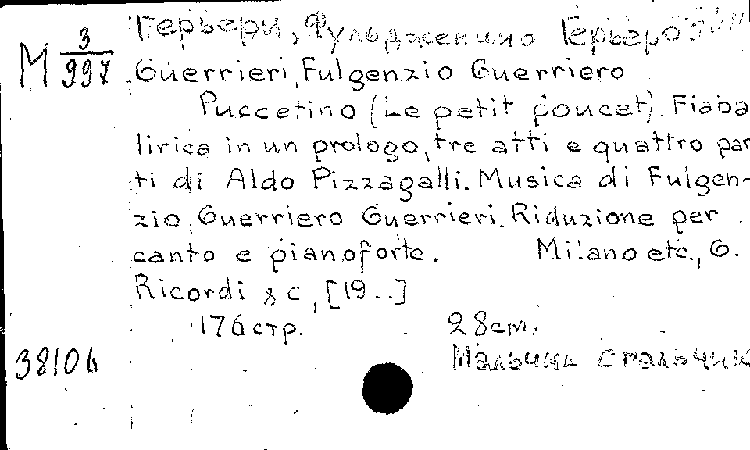 Герьери, Фульдженцио Герьеро
М 3/997
Guerrieri, Fulgenzio Guerriero
Puccetino (Le petit poucet). Fiaba
lirica in un prologo, tre atti e quattro par
ti di Aldo Pizzagalli. Musica di Fulgen-
zio Guerriero Guerrieri. Riduzione per
canto e pianoforte. Milano etc., G.
Ricordi & c, [19..]
176 стр. 28 cm.
Мальчик с пальчик